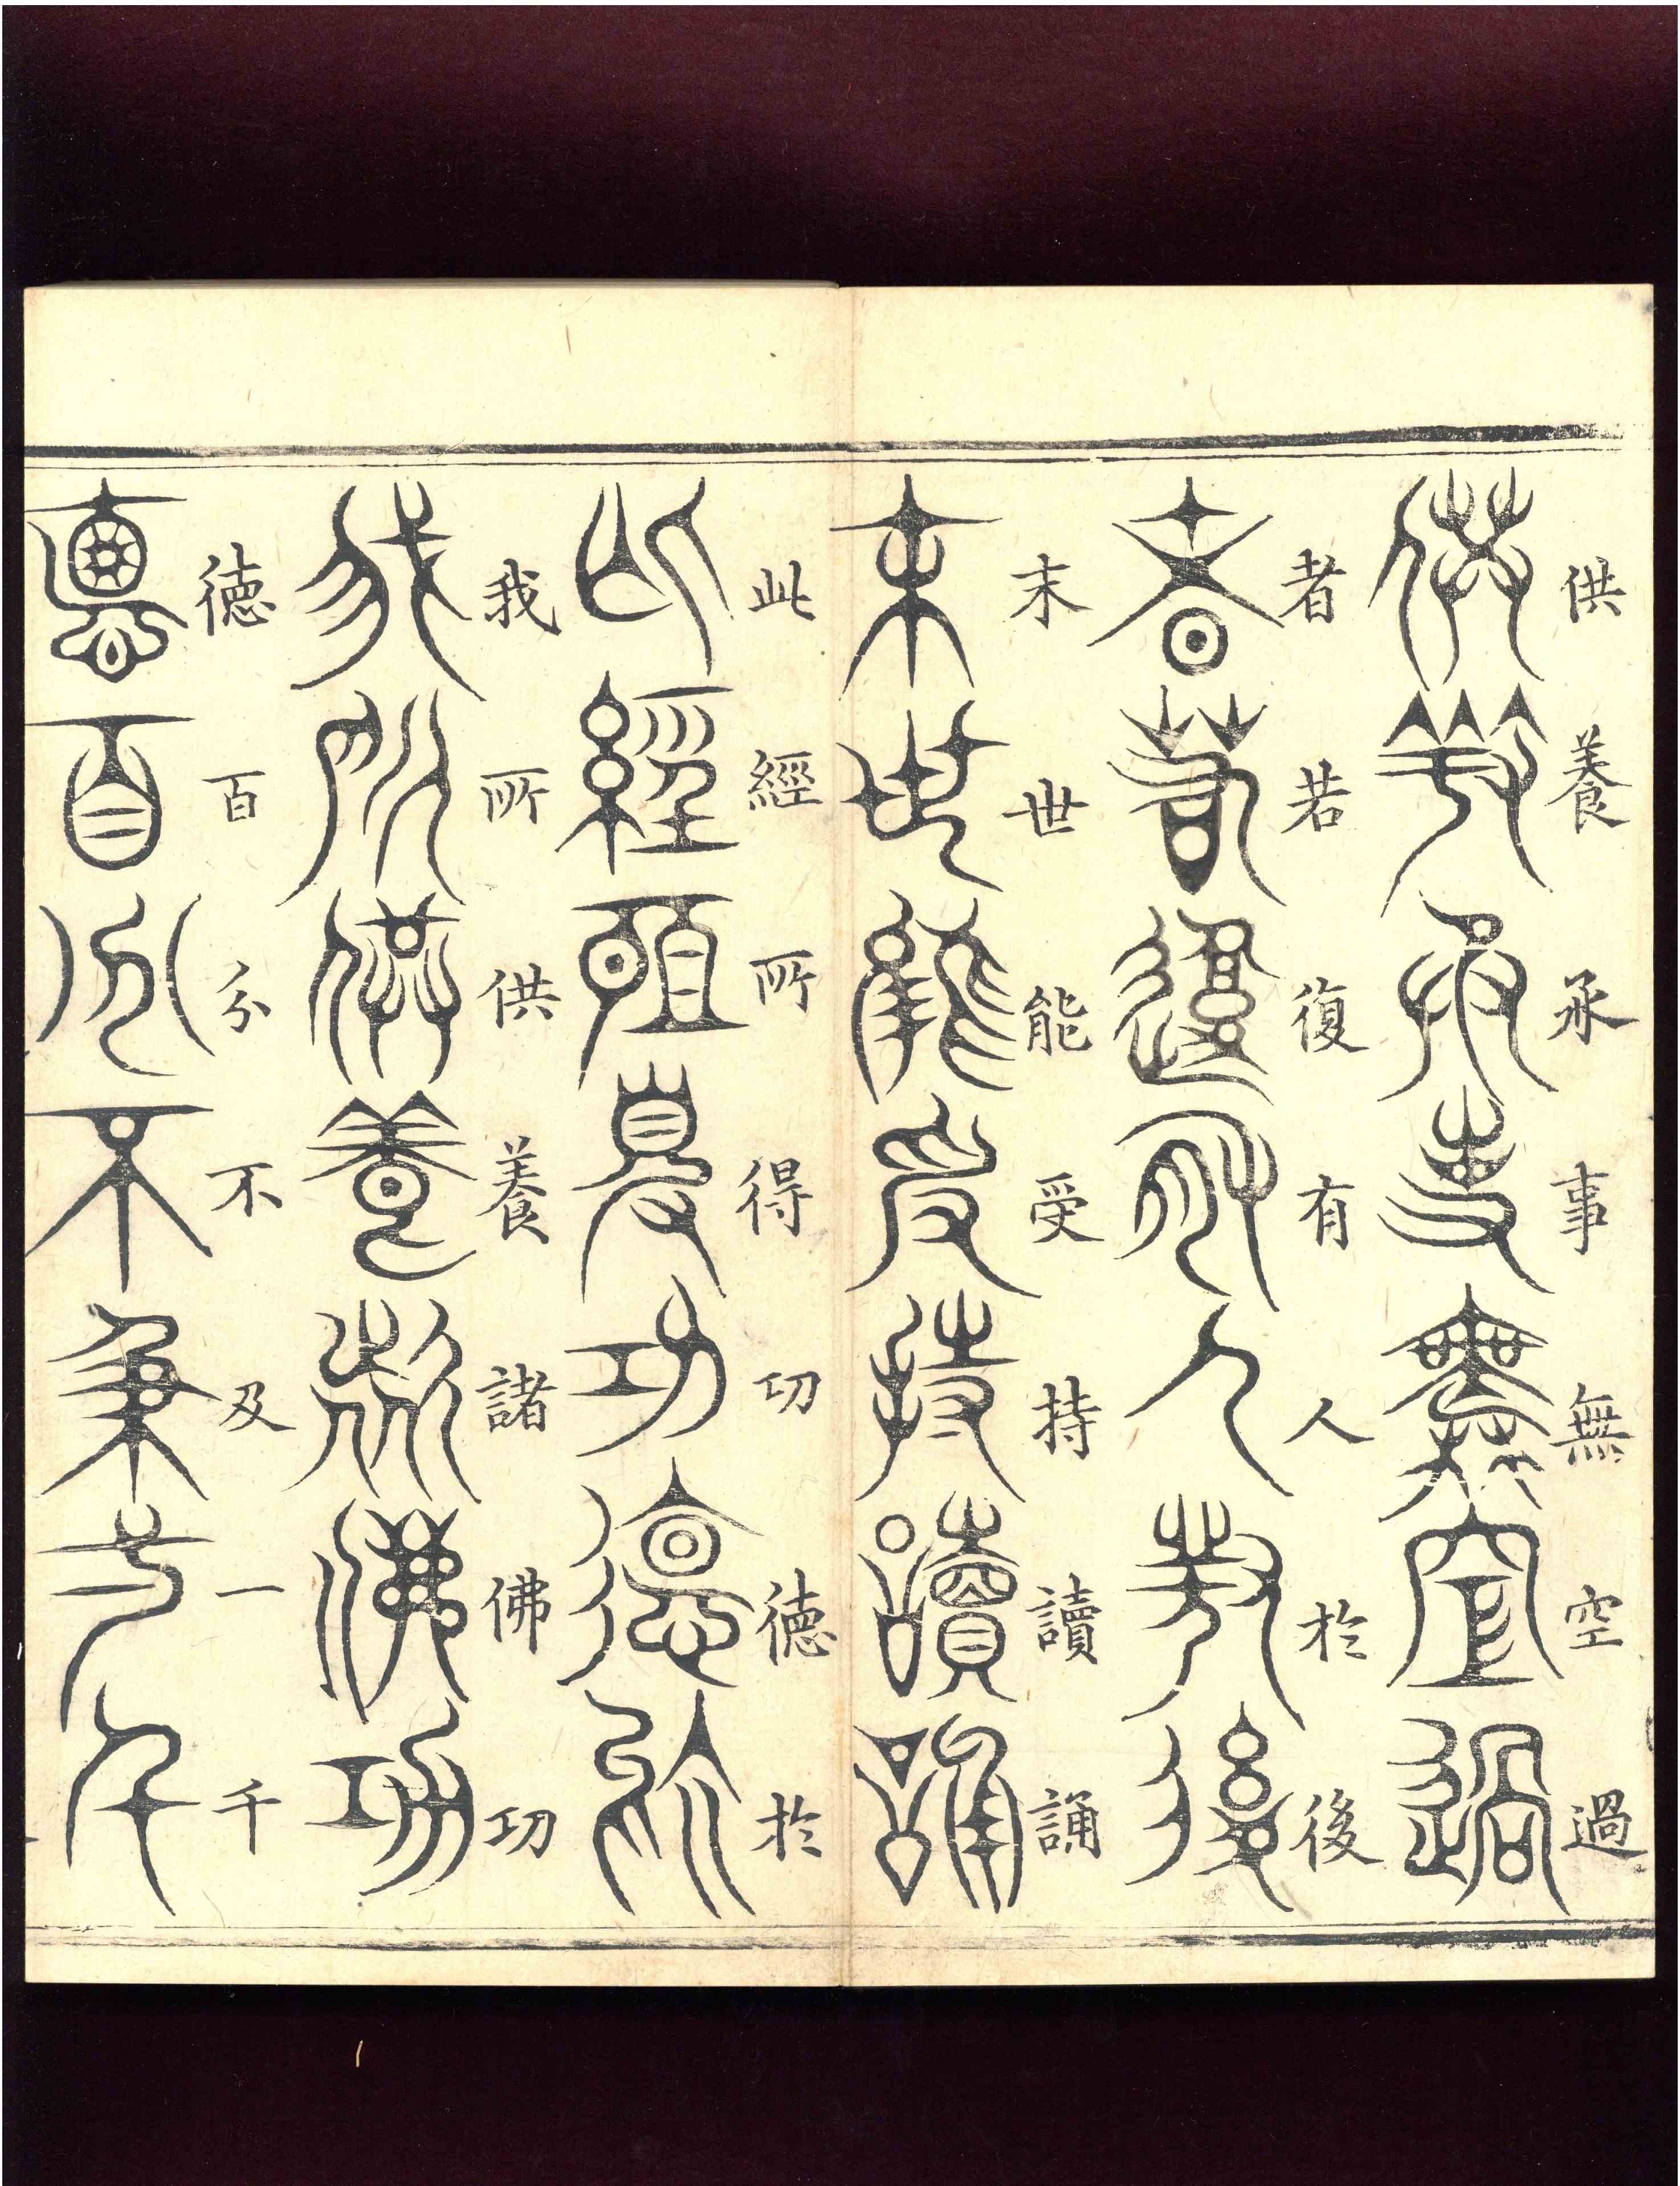 供養承事無空過
者若復有人於後
末世能受持讀誦
此經所得功德於
我所供養諸佛功
德百分不及一千